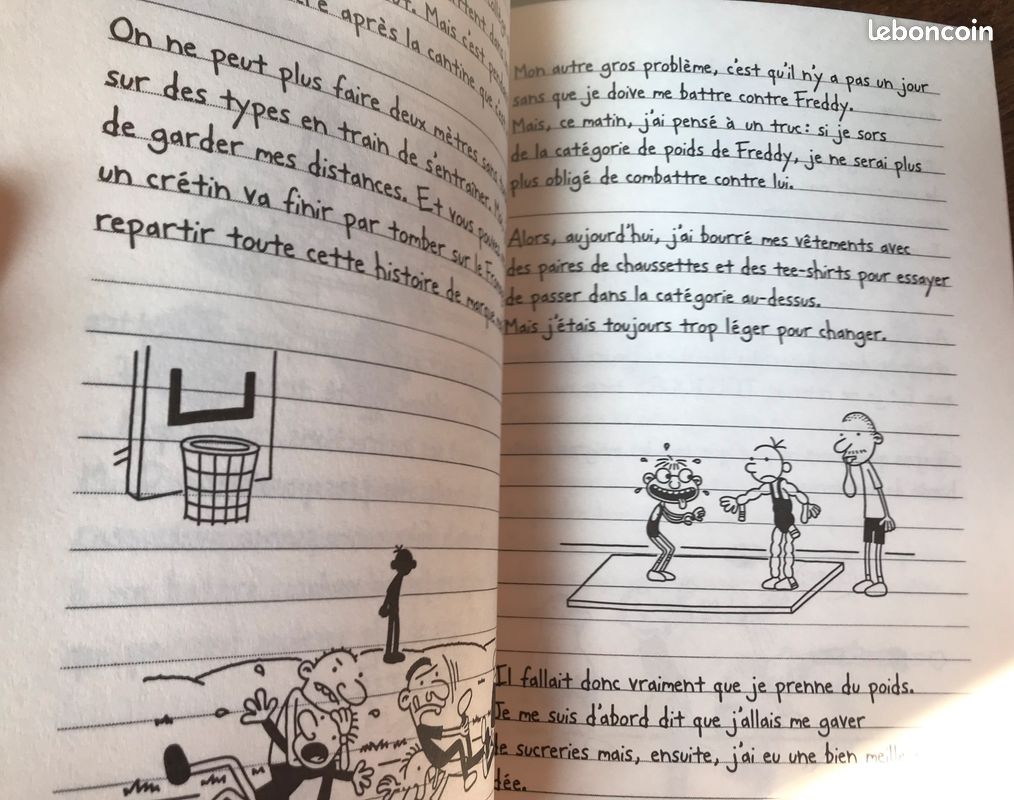 après la cantine que
Mais c'est
On ne peut plus faire deux mètres sans
sur des types en train de s'entraîner.
de garder mes distances. Et vous
un crétin va finir par tomber sur le
repartir toute cette histoire de
leboncoin
Mon autre gros problème, c'est qu'il n'y a pas un jour
sans que je doive me battre contre Freddy.
Mais, ce matin, j'ai pensé à un truc : si je sors
de la catégorie de poids de Freddy, je ne serai plus
plus obligé de combattre contre lui.
Alors, aujourd'hui, j'ai bourré mes vêtements avec
des paires de chaussettes et des tee-shirts pour essayer
de passer dans la catégorie au-dessus.
Mais j'étais toujours trop léger pour changer.
Il fallait donc vraiment que je prenne du poids.
Je me suis d'abord dit que j'allais me gaver
de sucreries mais, ensuite, j'ai eu une bien
idée.